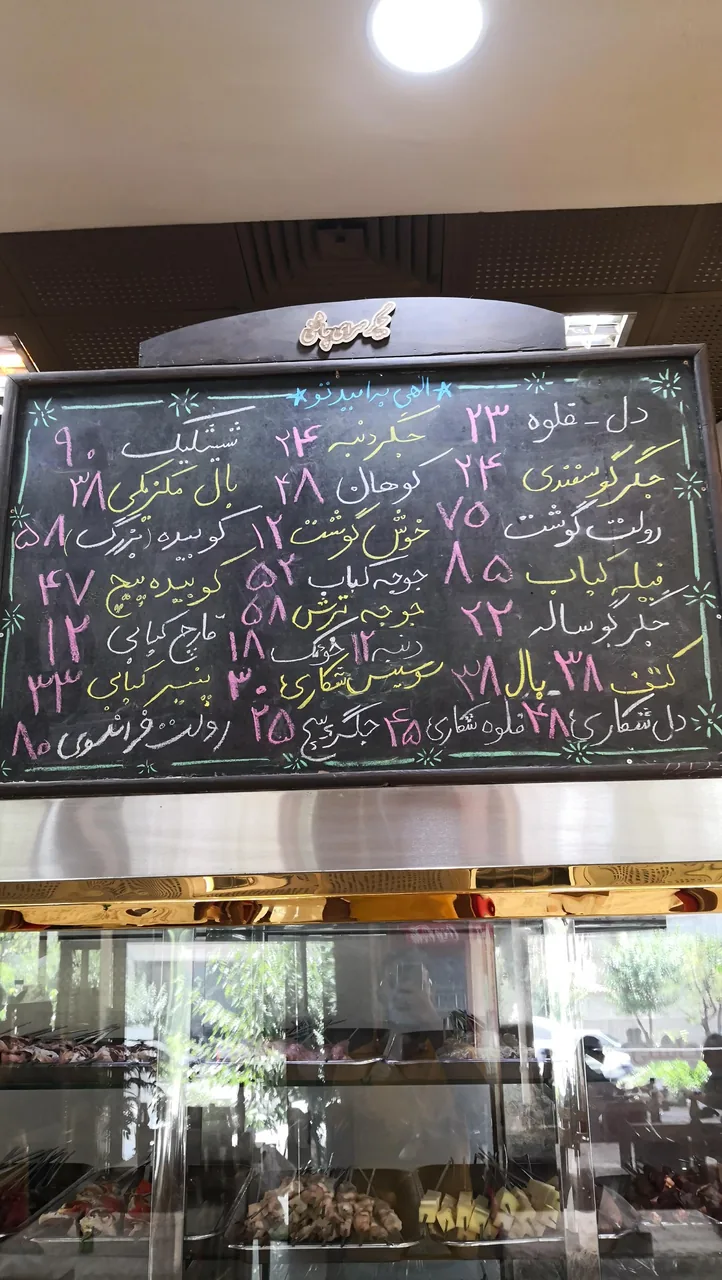 جگر سرای چاشنی
الهی به امید تو
دل - قلوه ۲۳
جگر گوسفندی ۲۴
رولت گوشت ۷۵
فیله کباب ۸۵
جگر گوساله ۲۲
کتف ۳۸ بال ۳۸
دل شکاری ۴۸ قلوه شکاری ۴۵
جگر دنبه ۲۴
کوهان ۴۸
خوش گوشت ۱۲
جوجه کباب ۵۲
جوجه ترش ۵۸
دنبه ۱۲ خوئک ۱۸
سوسیس شکاری ۳۰
جگر پیچ ۲۵
شیشلیک ۹۰
بال مکزیکی ۳۸
کوبیده (بزرگ) ۵۸
کوبیده پیچ ۴۷
قارچ کبابی ۱۲
پنیر کبابی ۳۳
رولت فرانسوی ۸۰